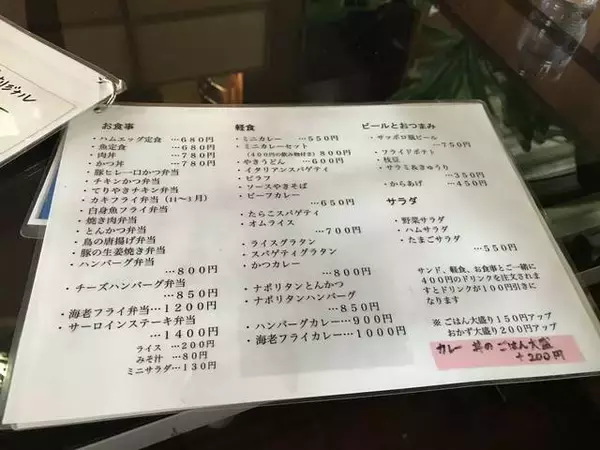 お食事
・ハムエッグ定食 …680円
・魚定食 …680円
・肉丼 …780円
・かつ丼 …780円
・豚ヒレ一口かつ弁当
・チキンかつ弁当
・てりやきチキン弁当
・カキフライ弁当(11〜3月)
・白身魚フライ弁当
・焼き肉弁当
・とんかつ弁当
・鳥の唐揚げ弁当
・豚の生姜焼き弁当
・ハンバーグ弁当
…800円
・チーズハンバーグ弁当
…850円
・海老フライ弁当…1200円
・サーロインステーキ弁当
…1400円
ライス …200円
みそ汁 …80円
ミニサラダ…130円
軽食
・ミニカレー …550円
・ミニカレーセット
(400円の飲み物付き)800円
・やきうどん …600円
・イタリアンスパゲティ
・ピラフ
・ソースやきそば
・ビーフカレー
…650円
・たらこスパゲティ
・オムライス
…700円
・ライスグラタン
・スパゲティグラタン
・かつカレー
…800円
・ナポリタンとんかつ
・ナポリタンハンバーグ
…850円
・ハンバーグカレー…900円
・海老フライカレー…1000円
ビールとおつまみ
・サッポロ瓶ビール
…750円
・フライドポテト
・枝豆
・サラミ&きゅうり
…350円
・からあげ …450円
サラダ
・野菜サラダ
・ハムサラダ
・たまごサラダ
…550円
サンド、軽食、お食事とご一緒に
400円のドリンクを注文されま
すとドリンクが100円引きに
なります
※ごはん大盛り150円アップ
おかず大盛り200円アップ
カレー 丼の ごはん大盛
+200円